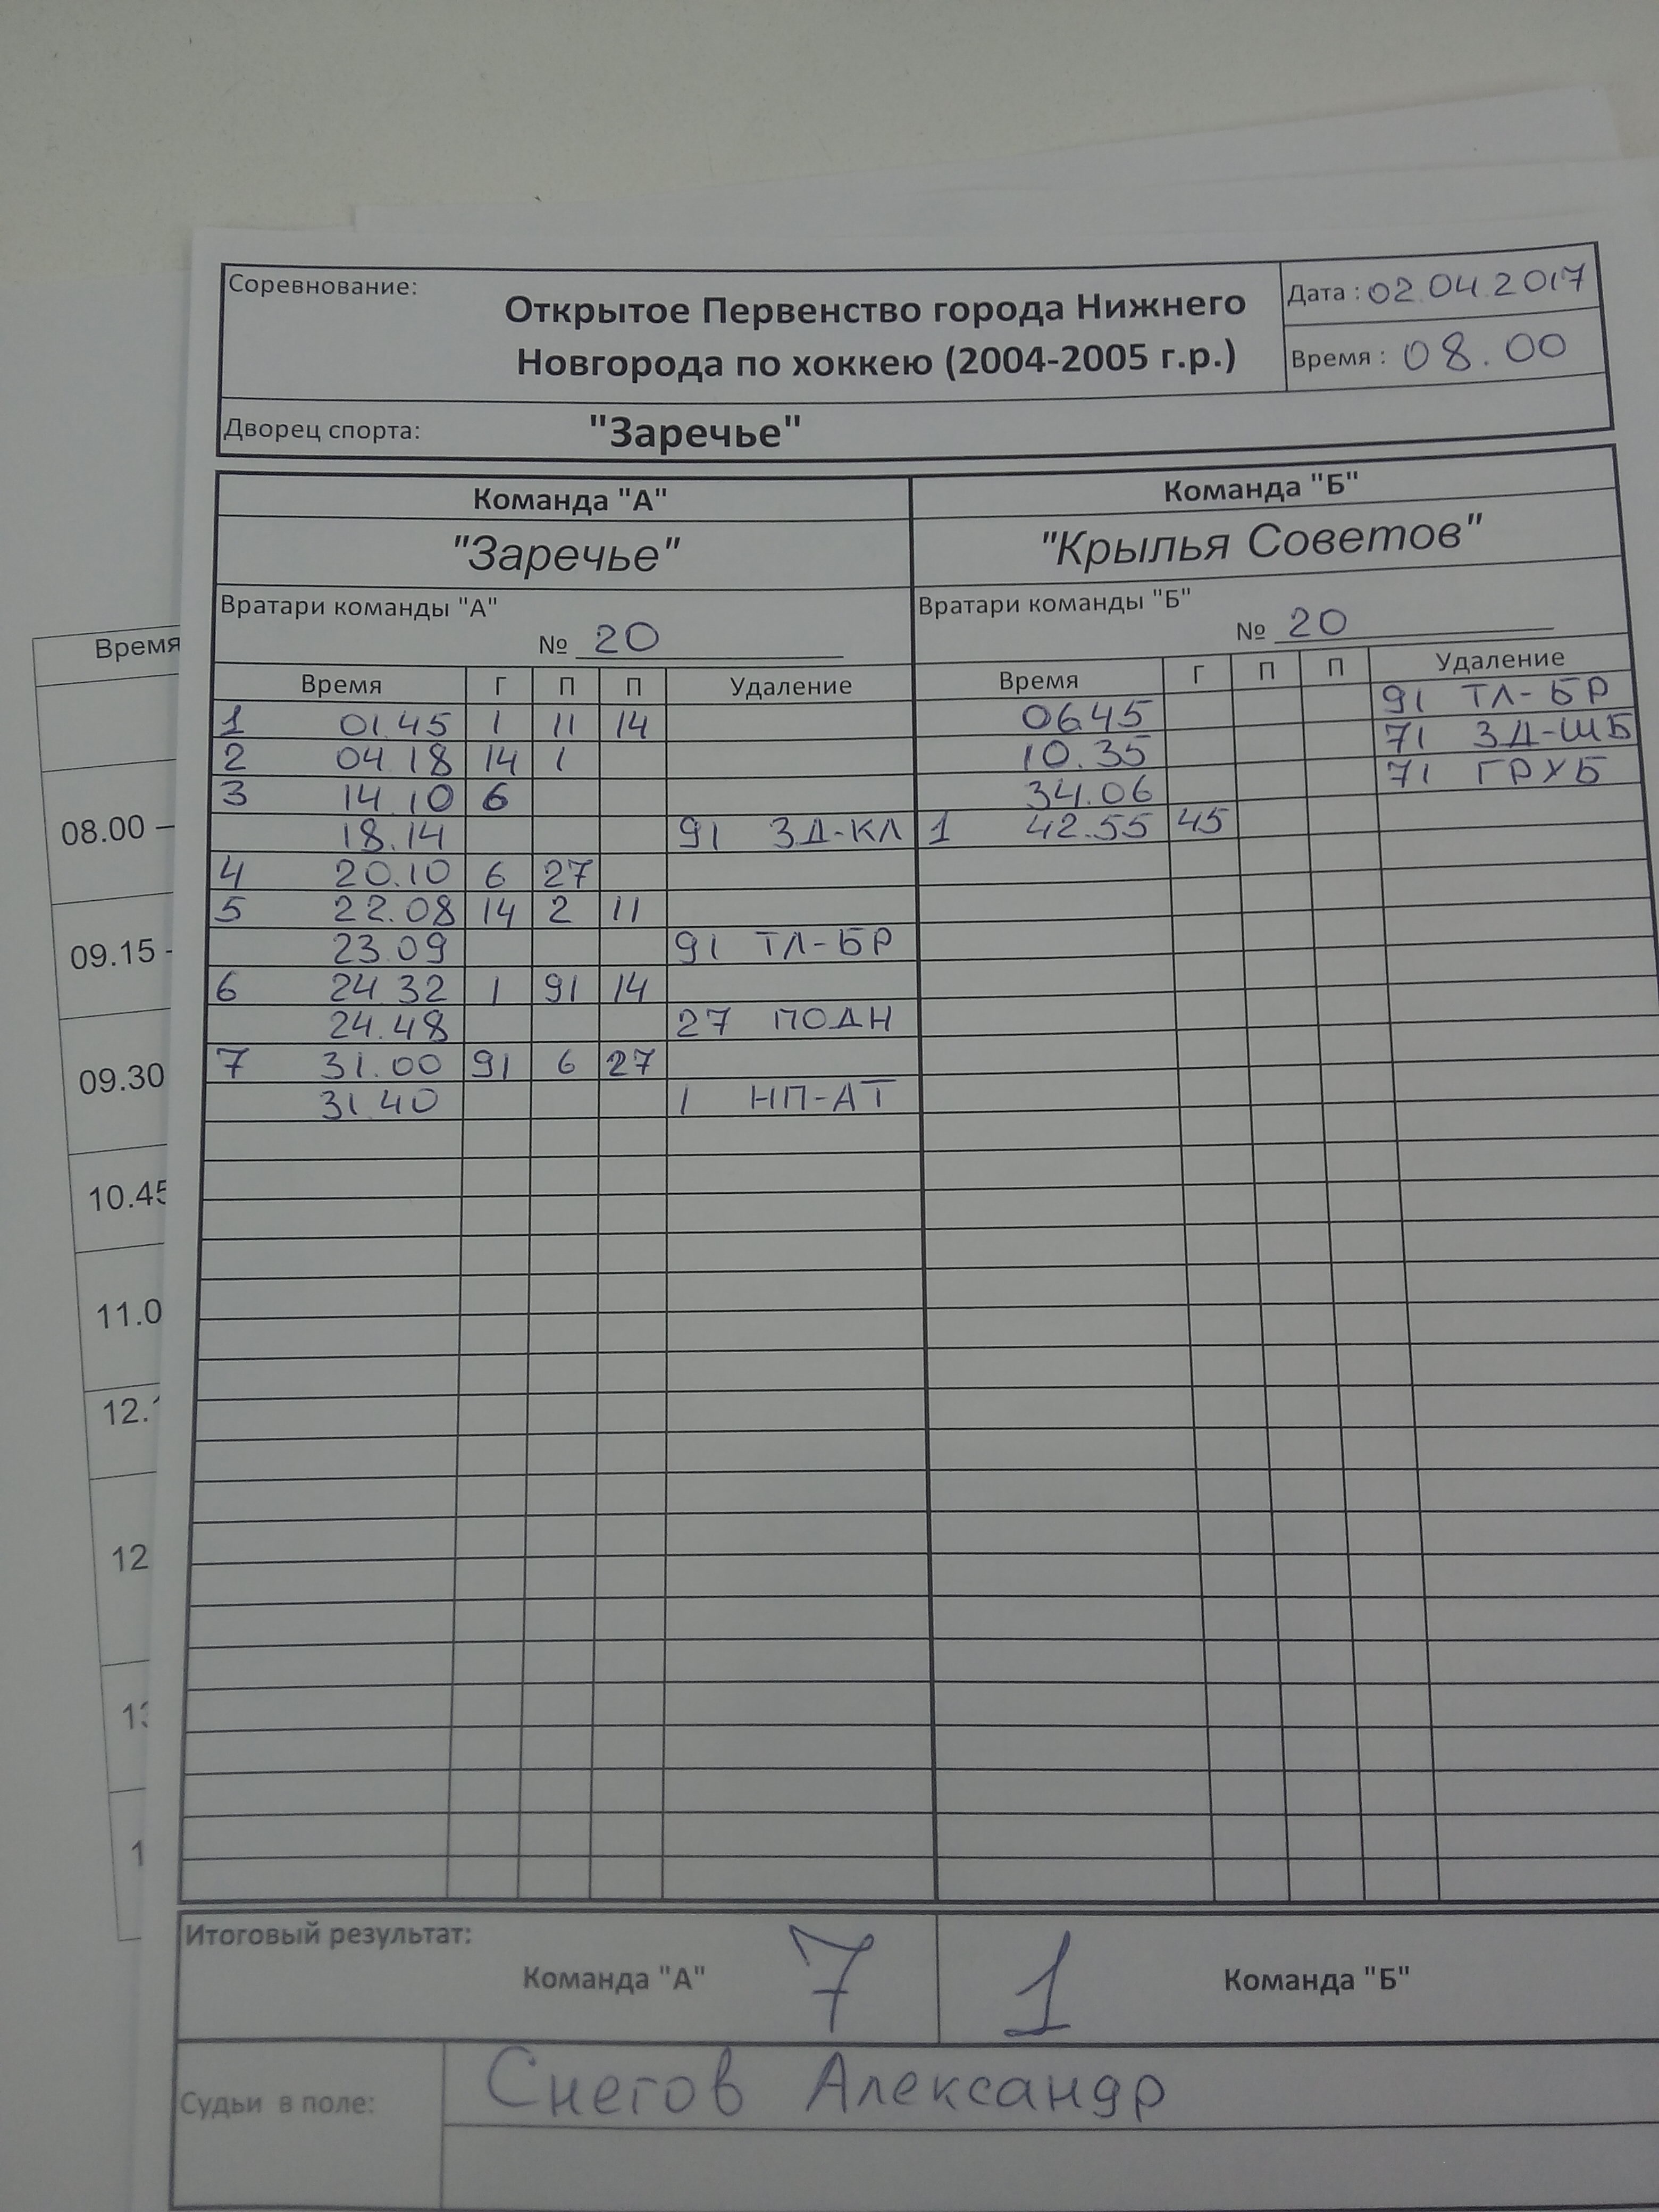 Соревнование:
Открытое Первенство города Нижнего
Новгорода по хоккею (2004-2005 г.р.)
Дата : 02.04.2017
Время : 08.00
Дворец спорта: "Заречье"
Команда "А" Команда "Б"
"Заречье" "Крылья Советов"
Вратари команды "А" Вратари команды "Б"
№ 20 № 20
Время Г П П Удаление Время Г П П Удаление
1 01.45 1 11 14 06.45 91 ТЛ-БР
2 04.18 14 1 10.35 71 ЗД-ШБ
3 14.10 6 34.06 71 ГРУБ
18.14 91 ЗД-КЛ 1 42.55 45
4 20.10 6 27
5 22.08 14 2 11
23.09 91 ТЛ-БР
6 24.32 1 91 14
24.48 27 ПОДН
7 31.00 91 6 27
31.40 1 НП-АТ
Итоговый результат:
Команда "А" 7 1 Команда "Б"
Судьи в поле: Снегов Александр
Время
08.00 –
09.15 -
09.30
10.45
11.0
12.
12
13
1